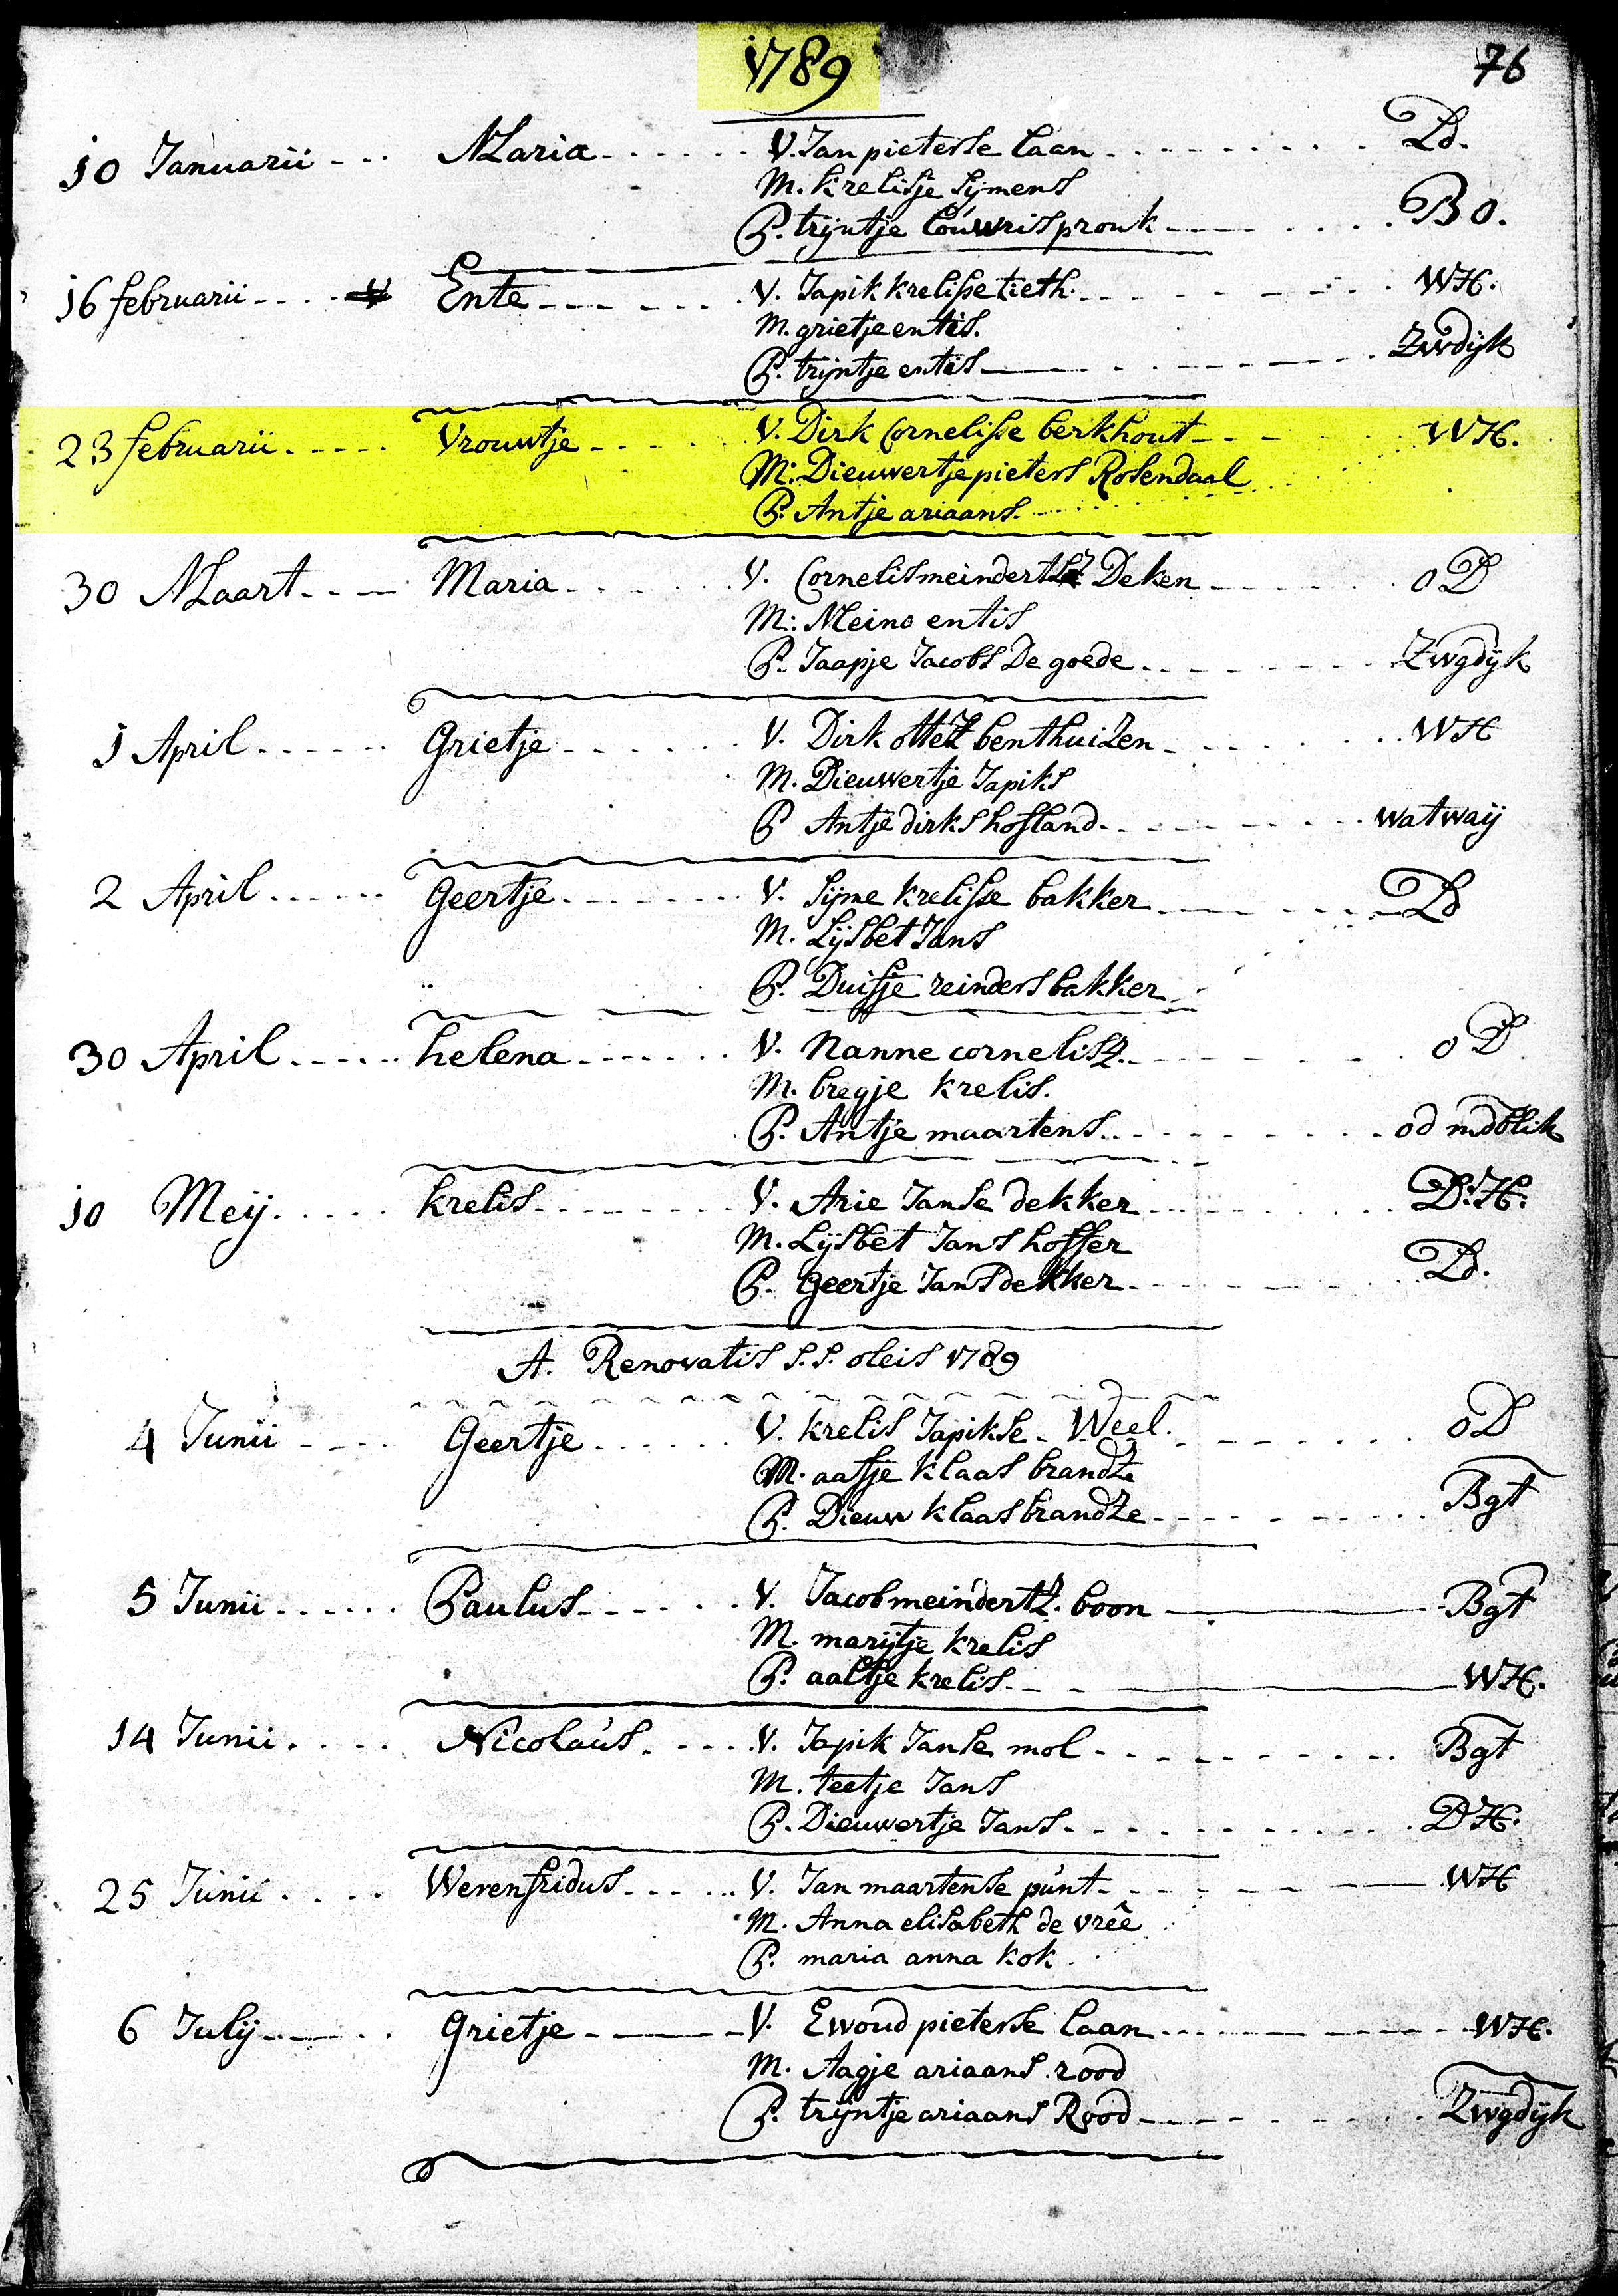 1789
76
10 Januarii Maria V. Jan pieterse laan Ld.
M. krelisje Sijmens
P. trijntje louwris pronk Bo.
16 februarii Ente V. Japik krelisse tieth. WH.
M. grietje entis.
P. trijntje entis Zwdijk
23 februarii Vrouwtje V. Dirk Cornelisse berkhout WH.
M: Dieuwertje pieters Rosendaal
P. Antje ariaans
30 Maart Maria V. Cornelis meinderts Deken oD
M: Meino entis
P. Jaapje Jacobs De goede Zwgdijk
1 April Grietje V. Dirk ottez benthuizen WH
M. Dieuwertje Japiks
P Antje dirks hofland watwaij
2 April Geertje V. Sijme krelisse bakker Ld
M. Lijsbet Jans
P. Duifje reinders bakker
30 April helena V. Nanne cornelisz. oD
M. bregje krelis.
P. Antje maartens od mdblik
10 Meij krelis V. Arie Janse dekker D:H:
M. Lijsbet Jans hoffer
P. Geertje Jans dekker Ld.
A. Renovatis S.S. oleis 1789
4 Junii Geertje V. krelis Japikse Weel. oD
M. aafje klaas brandze
P. Dieuw klaas brandze Bgt
5 Junii Paulus V. Jacob meindertz. boon Bgt
M. marijtje krelis
P. aaltje krelis. WH.
14 Junii Nicolaus V. Japik Janse mol Bgt
M. teetje Jans
P. Dieuwertje Jans DH.
25 Junii Werenfridus V. Jan maartense punt WH
M. Anna elisabeth de vreê
P. maria anna kok
6 Julij Grietje V. Ewoud pieterse laan WH.
M. Aagje ariaans rood
P. trijntje ariaans Rood Zwgdijk